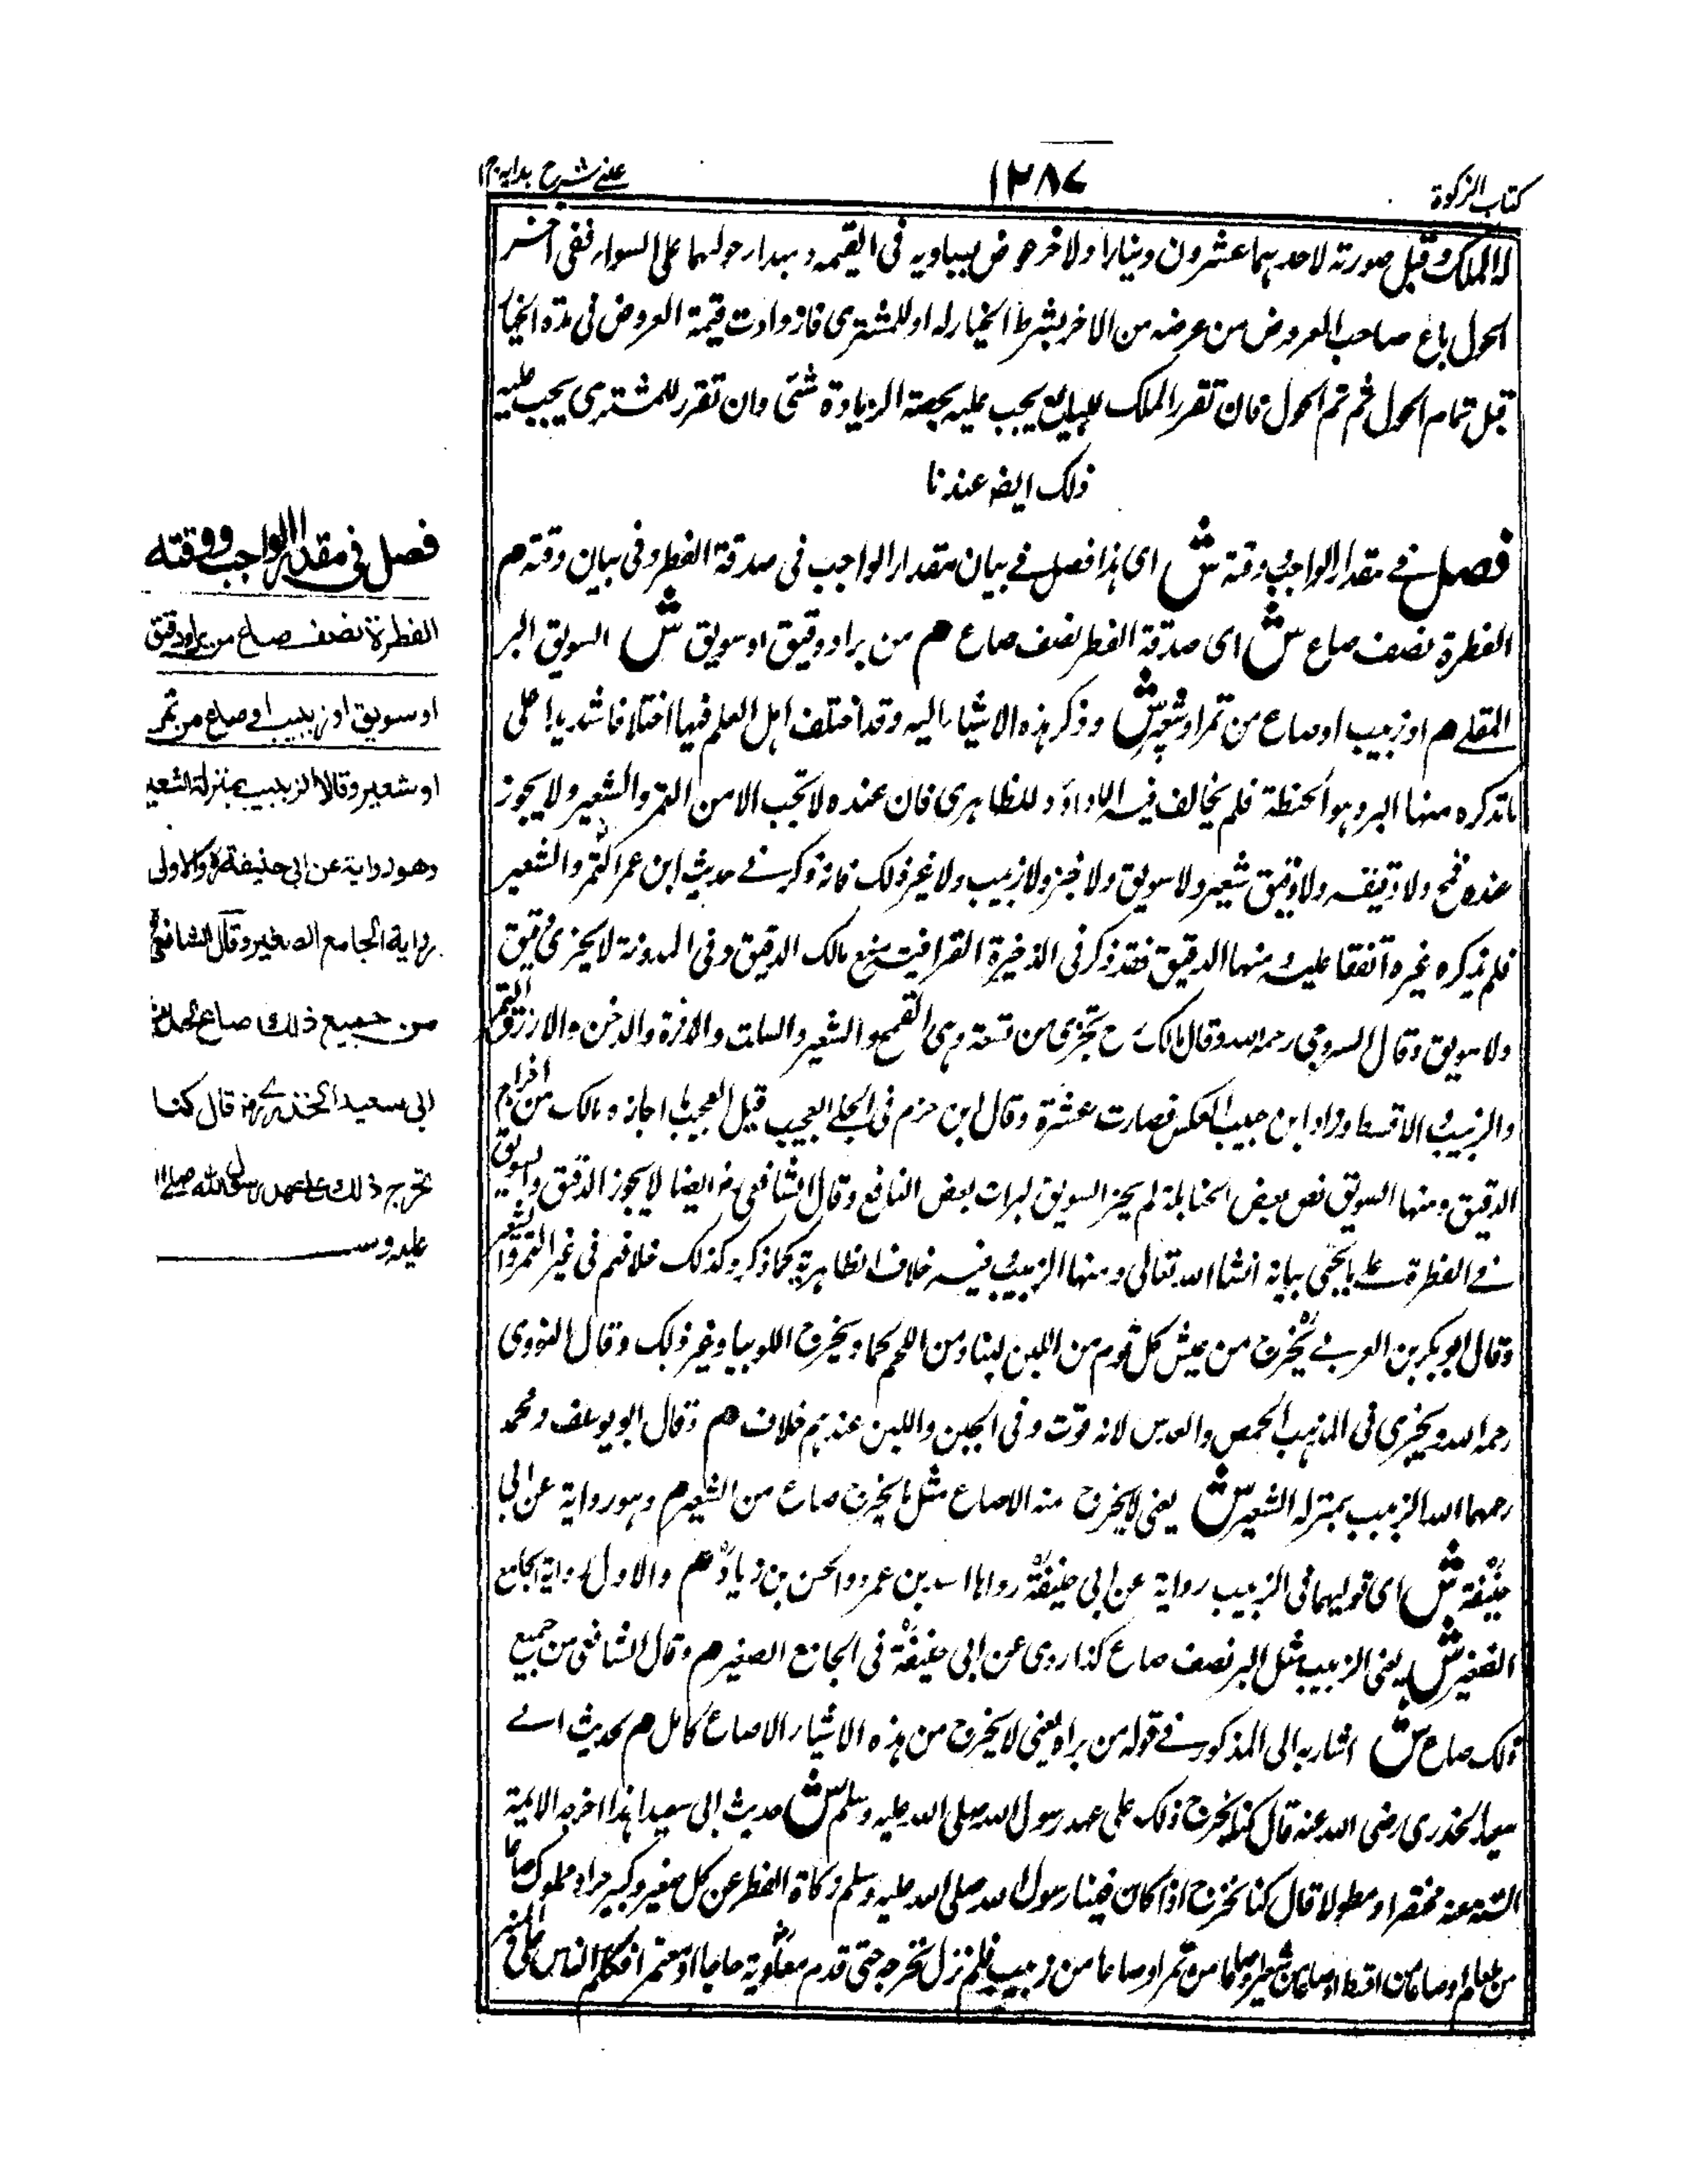 كتاب الزكوة
١٢٨٧
عينى شرح هدايه ج ١
لا الملك وقيل صورته لاحدهما عشرون دينارا ولاخر عوض يساويه فى القيمه ومبدار حولهما على السواء ففى آخر
الحول باع صاحب العروض من عرضه من الاخر بشرط الخيار له او للمشترى فازدادت قيمة العروض فى مدة الخيار
قبل تمام الحول ثم تم الحول فان تقرر الملك للبايع يجب عليه بحصة الزيادة شئ وان تقرر للمشترى يجب عليه
ذلك ايضا عندنا
فصل فى مقدار الواجب ووقته ش اى هذا فصل فى بيان مقدار الواجب فى صدقة الفطر وفى بيان وقته م
الفطرة نصف صاع ش اى صدقة الفطر نصف صاع م من بر او دقيق او سويق ش السويق البر
المقلى م او زبيب او صاع من تمر او شعير ش وذكر هذه الاشياء اليه وقد اختلف اهل العلم فيها اختلافا شديدا على
ما تذكره منها البر وهو الحنطة فلم يخالف فيه الا داؤد للظاهرى فان عنده لا تجب الا من التمر والشعير ولا يجوز
عنده قمح ولا دقيقه ولا دقيق شعير ولا سويق ولا خبز ولا زبيب ولا غير ذلك فانه ذكر فى حديث ابن عمر التمر والشعير
فلم يذكره غيره اتفقا عليه منها الدقيق فقد ذكر فى الذخيرة القرافية منع مالك الدقيق وفى المدونة لا يجزى دقيق
ولا سويق وقال السروجى رحمه الله وقال مالك ح تجزى من تسعة وهى القمح والشعير والسلت والذرة والدخن والارز والتمر
والزبيب والاقط وزاد ابن حبيب العلس فصارت عشرة وقال ابن حزم فى المحلى العجيب قيل العجب ما اجازه مالك من اخراج
الدقيق ومنها السويق نص بعض الحنابلة لم يجز السويق لبراة بعض النافع وقال الشافعى رح ايضا لا يجوز الدقيق والسويق
فى الفطرة على ما يجئ بيانه انشا الله تعالى ومنها الزبيب فيه خلاف الظاهرية كما ذكر وكذلك خلافهم فى غير التمر والشعير
وقال ابو بكر بن العربى يخرج من عيش كل قوم من اللبن لبنا ومن اللحم لحما ويخرج اللوبيا وغير ذلك وقال النووى
رحمه الله ويجزى فى المذهب الحمص والعدس لانه قوت وفى الجبن واللبن عندهم خلاف م وقال ابو يوسف ومحمد
رحمهما الله الزبيب بمنزلة الشعير ش يعنى لا يخرج منه الا صاع مثل ما يخرج صاع من الشعير م وهو رواية عن ابى
حنيفة ش اى قوليهما فى الزبيب رواية عن ابى حنيفة رواها اسد بن عمرو والحسن بن زياد م والاول رواية الجامع
الصغير ش يعنى الزبيب مثل البر نصف صاع كذا روى عن ابى حنيفة فى الجامع الصغير م وقال الشافعى من جميع
ذلك صاع ش اشار به الى المذكور فى قوله من براه يعنى لا يخرج من هذه الاشياء الا صاع كامل م لحديث ابى
سعيد الخدرى رضى الله عنه قال كنا نخرج ذلك على عهد رسول الله صلى الله عليه وسلم ش حديث ابى سعيد هذا اخرجه الايمة
الستة عنه مختصرا ومطولا قال كنا نخرج اذا كان فينا رسول الله صلى الله عليه وسلم زكاة الفطر عن كل صغير وكبير حر او مملوك صاعا
من طعام او صاعا من اقط او صاعا من شعير او صاعا من تمر او صاعا من زبيب فلم نزل نخرجه حتى قدم معاوية حاجا او معتمرا فكلم الناس على المنبر
فصل فى مقدار الواجب ووقته
الفطرة نصف صاع من بر او دقيق
او سويق او زبيب او صاع من تمر
او شعير وقالا الزبيب بمنزلة الشعير
وهو رواية عن ابى حنيفة رح والاولى
رواية الجامع الصغير وقال الشافعى
من جميع ذلك صاع لحديث
ابى سعيد الخدرى رض قال كنا
نخرج ذلك على عهد رسول الله صلى الله
عليه وسـ